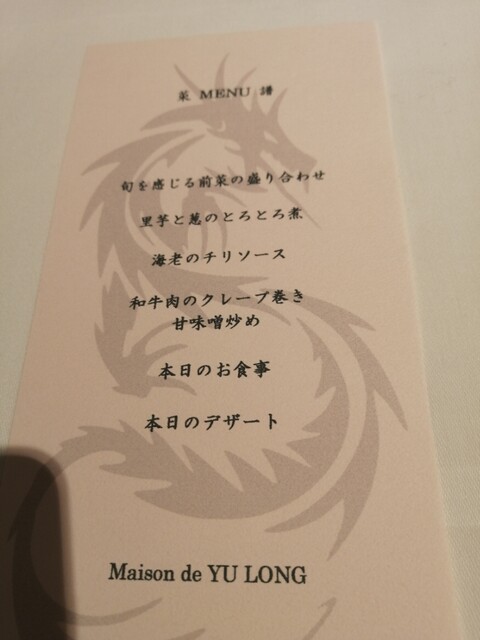 菜 MENU 譜
旬を感じる前菜の盛り合わせ
里芋と葱のとろとろ煮
海老のチリソース
和牛肉のクレープ巻き
甘味噌炒め
本日のお食事
本日のデザート
Maison de YU LONG